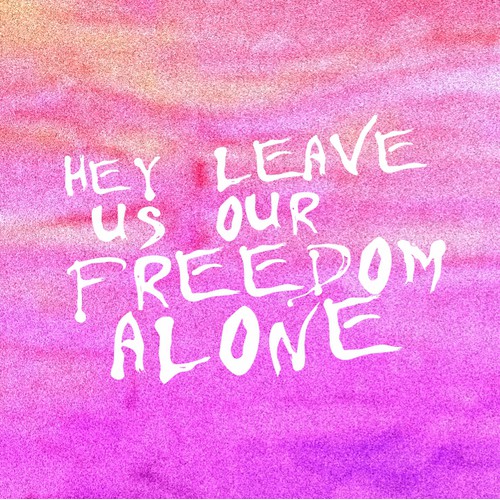 HEY LEAVE
US OUR
FREEDOM
ALONE